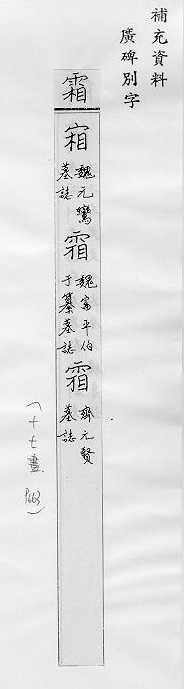 補充資料
廣碑別字
霜
魏元鸞
墓誌
霜
魏富平伯
于纂墓誌
霜
齊元賢
墓誌
(十七畫